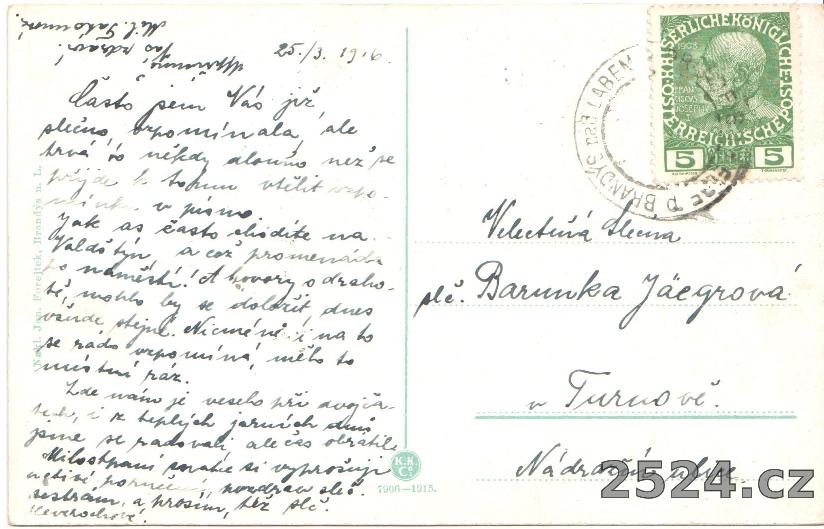 25./3. 1916.
Často jsem Vás již,
slečno, vzpomínala, ale
trvá to někdy dlouho než se
přijde k tomu vtělit vzpo-
mínku v písmo.
Jak as často chodíte na
Valdštýn, a což promenáda
po náměstí! A hovory o draho-
tě, mohlo by se doložit, dnes
všude stejné. Nicméně i na to
se rádo vzpomíná, mělo to
místní ráz.
Zde nám je veselo při dvojčá-
tech, i z teplých jarních dnů
jsme se radovali, ale čas obrátil.
Milostpaní matce si vyprošuji
uctivé poručení, pozdrav sleč.
sestrám, a prosím, též slč.
Vás zdraví
Nakl. Jan Forejtek, Brandýs n. L.
K.K.
Co
7906—1915.
KAISERLICHE KÖNIGLICHE
ÖSTERREICHISCHE POST
1908
FRANCISCVS
JOSEPH I
5 HELLER 5
BRANDÝS NAD LABEM
Velectěná Slečna
slč. Barunka Jäegrová
v Turnově.
Nádražní ulice.
2524.cz